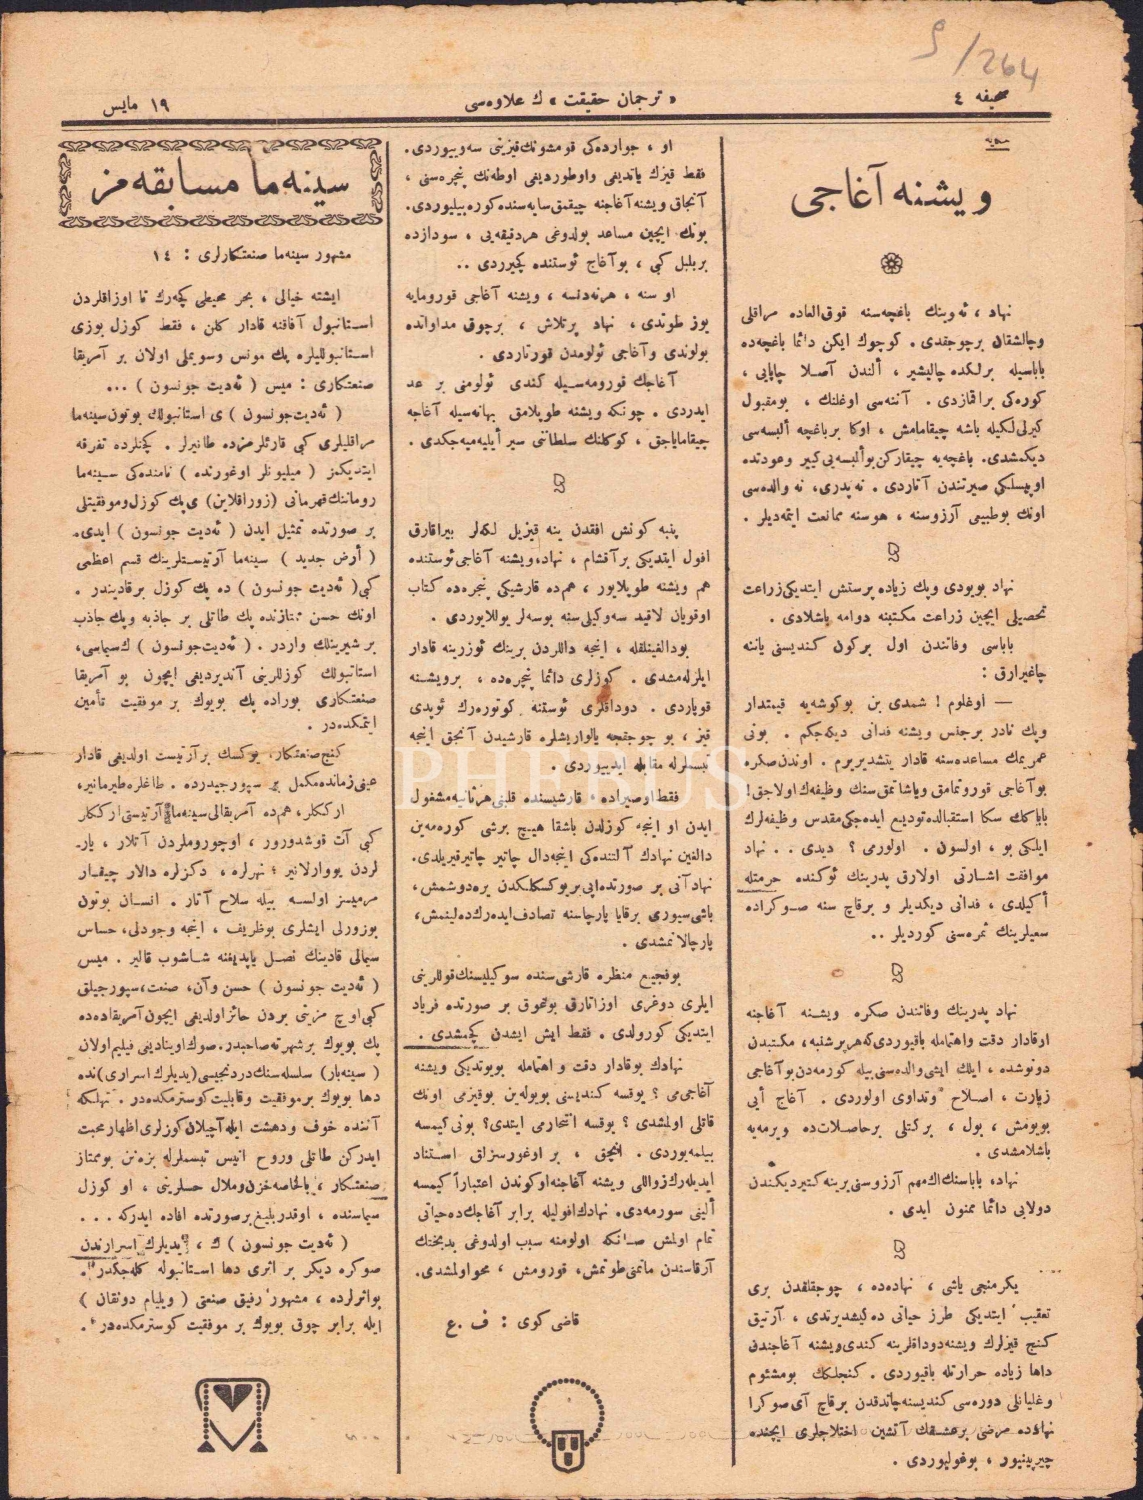 9/264
صحيفه ٤
« ترجمان حقيقت » ك علاوه‌سی
١٩ مايس
ويشنه آغاجی
نهاد ، ئه‌وينك باغچه‌سنه فوق‌العاده مراقلی
وچالشقان برچوجقدی . كوچوك ايكن دائما باغچه‌ده
باباسيله برلكده چاليشير ، ألندن آصلا چاپايی ،
كوره‌كی براقمازدی . آننه‌سی اوغلنك ، بومقبول
كيرلی‌لكيله باشه چيقامامش ، اوكا برباغچه ألبسه‌سی
ديكمشدی. باغچه‌يه چيقاركن بوألبسه‌يی كيير وعودتده
اوپيسلكی صيرتندن آتاردی . نه‌پدری، نه والده‌سی
اونك بوطبيعی آرزوسنه ، هوسنه ممانعت ايتمه‌ديلر .
نهاد بويودی وپك زياده پرستش ايتديكی‌زراعت
تحصيلی ايچين زراعت مكتبنه دوامه باشلادی .
باباسی وفاتندن اول بركون كنديسنی ياننه
چاغيرارق :
— اوغلوم ! شمدی بن بوكوشه‌يه قيمتدار
وپك نادر برجنس ويشنه فدانی ديكه‌جكم . بونی
عمريمك مساعده‌سنه قادار يتشديريرم . اوندن‌صكره
بوآغاجی قوروتمامق وياشاتمق‌سنك وظيفه‌ك اولاجق!
باباكك سكا استقبالده‌توديع ايده‌جكی‌مقدس وظيفه‌لرك
ايلكی بو ، اولسون . اولورمی ؟ ديدی . . نهاد
موافقت اشارتی اولارق پدرينك ئوكنده حرمتله
أكيلدی ، فدانی ديكديلر و برقاچ سنه صوكراده
سعيلرينك ثمره‌سنی كورديلر ..
نهاد پدرينك وفاتندن صكره ويشنه آغاجنه
اوقادار دقت واهتمامله باقيوردی‌كه‌هرپرشنبه، مكتبدن
دونوشده ، ايلك ايشی‌والده‌سنی‌بيله كورمه‌دن‌بوآغاجی
زيارت ، اصلاح وتداوی اولوردی . آغاج أيی
بويومش ، بول ، بركتلی برحاصلات‌ده ويرمه‌يه
باشلامشدی .
نهاد، باباسنك‌اك‌مهم آرزوسنی‌يرينه‌كتيرديكندن
دولايی دائما ممنون ايدی .
يكرمنجی ياشی ، نهاده‌ده ، چوجقلقدن بری
تعقيب ايتديكی طرز حياتی ده‌كيشديرتدی ، آرتيق
كنج قيزلرك ويشنه‌دوداقلرينه كندی‌ويشنه آغاجندن
داها زياده حرارتله باقيوردی . كنجلكك بومشئوم
وغليانلی دوره‌سی كنديسنه‌چاتدقدن برقاچ آی‌صوكرا
نهادده مرضی برعشقك آتشين اختلاجلری ايچنده
چيرپينيور ، بوغوليوردی .
او ، جوارده‌كی قومشونك‌قيزينی سه‌وييوردی.
فقط قيزك ياتديغی واوطورديغی اوطه‌نك پنجره‌سنی ،
آنجاق ويشنه آغاجنه چيقمق‌سايه‌سنده‌كوره‌بيليوردی.
بونك ايچين مساعد بولدوغی هردقيقه‌يی ، سودازده
بربلبل كبی ، بوآغاج ئوستنده كچيرردی ..
او سنه ، هرنه‌دنسه ، ويشنه آغاجی قورومايه
يوز طوتدی ، نهاد پرتلاش ، برچوق مداواتده
بولوندی وآغاجی ئولومدن قورتاردی .
آغاجك قورومه‌سيله كندی ئولومنی بر عد
ايدردی . چونكه ويشنه طوپلامق بهانه‌سيله آغاجه
چيقاماياجق ، كوكلنك سلطاننی سير أيليه‌ميه‌جكدی .
پنبه كونش افقدن ينه قيزيل لكه‌لر بيراقارق
افول ايتديكی برآقشام ، نهاد،ويشنه آغاجی‌ئوستنده
هم ويشنه طوپلايور ، هم‌ده قارشيكی پنجره‌ده كتاب
اوقويان لاقيد سه‌وكيلی‌سنه بوسه‌لر يوللايوردی .
بودالغينلقله ، اينجه داللردن برينك ئوزرينه قادار
ايلرله‌مشدی . كوزلری دائما پنجره‌ده ، برويشنه
قوپاردی . دوداقلری ئوستنه كوتوره‌رك ئوپدی
قيز ، بو چوجقجه يالواريشلره قارشيدن آنجق اينجه
تبسملرله مقابله ايدييوردی .
فقط‌اوصيراده ، قارشيسنده قلبنی‌هرثانيه‌مشغول
ايدن او اينجه كوزلدن باشقا هيچ برشی كورمه‌ين
دالغين نهادك آلتنده‌كی اينجه‌دال چاتير چاتيرقيريلدی.
نهادآنی بر صورتده‌اپی‌بريوكسكلكدن يره‌دوشمش،
باشی‌سيوری برقايا پارچاسنه تصادف‌ايده‌رك‌ده‌لينمش،
پارچالانمشدی .
بوفجيع منظره قارشی‌سنده سوكيليسنك‌قوللرينی
ايلری دوغری اوزاتارق بوغوق بر صورتده فرياد
ايتديكی كورولدی . فقط ايش ايشدن كچمشدی .
نهادك بوقادار دقت و اهتمامله بويوتديكی ويشنه
آغاجی‌می ؟ يوقسه كنديسنی بويوله‌ين بوقيزمی اونك
قاتلی اولمشدی ؟ يوقسه انتحارمی ايتدی؟ بونی‌كيمسه
بيلمه‌يوردی . آنجق ، بر اوغورسزلق استناد
ايديله‌رك‌زواللی ويشنه آغاجنه‌اوكوندن اعتباراً كيمسه
ألينی سورمه‌دی. نهادك‌افوليله برابر آغاجك‌ده‌حياتی
تمام اولمش صانكه اولومنه سبب اولدوغی بدبختك
آرقاسندن ماتمنی‌طوتمش، قورومش ، محواولمشدی.
قاضی كوی : ف .ع
سينه‌ما مسابقه‌مز
مشهور سينه‌ما صنعتكارلری : ١٤
ايشته خيالی ، بحر محيطی كچه‌رك تا اوزاقلردن
استانبول آفاقنه قادار كلن ، فقط كوزل يوزی
استانبوللیلره پك مونس وسويملی اولان بر آمريقا
صنعتكاری : ميس ( ئه‌ديت جونسون ) ...
( ئه‌ديت‌جونسون ) ی استانبولك بوتون‌سينه‌ما
مراقليلری كبی قارئلرمزده طانيرلر . كچنلرده تفرقه
ايتديكمز ( ميليونلر اوغورنده ) نامنده‌كی سينه‌ما
رومانك‌قهرمانی (زوراقلاين) ی‌پك كوزل‌وموفقيتلی
بر صورتده تمثيل ايدن ( ئه‌ديت جونسون ) ايدی.
( أرض جديد ) سينه‌ما آرتيستلرينك قسم اعظمی
كبی( ئه‌ديت جونسون ) ده پك كوزل برقاديندر .
اونك حسن ممتازنده پك طاتلی بر جاذبه وپك جاذب
بر شيرينلك واردر . ( ئه‌ديت‌جونسون ) ك‌سيماسی،
استانبولك كوزللرينی آنديرديغی ايچون بو آمريقا
صنعتكاری بوراده پك بويوك بر موفقيت تأمين
ايتمكده‌در .
كنج‌صنعتكار، يوكسك برآرتيست اولديغی قادار
عينی‌زمانده‌مكمل بر سپورجيدرده . طاغلره‌طيرمانير،
ارككلر ، هم‌ده آمريقالی‌سينه‌ما آرتيستی‌ارككلر
كبی آت قوشدورور ، اوچوروملردن آتلار ، يار-
لردن يووارلانير ، نهرلره ، دكزلره دالار چيقار
مرميسز اولسه بيله سلاح آتار . انسان بوتون
بوزورلی ايشلری بوظريف ، اينجه وجودلی، حساس
سيمالی قادينك نصل ياپديغنه شاشوب قالير . ميس
( ئه‌ديت جونسون ) حسن وآن، صنعت، سپورجيلق
كبی‌اوچ مزيتی بردن حائزاولديغی ايچون‌آمريقاده‌ده
پك بويوك بر شهرته‌صاحبدر. صوك‌اوينادیغی فيليم‌اولان
( سينه‌بار) سلسله‌سنك‌دردنجيسی(يديلرك اسراری)نده
دها بويوك برموفقيت وقابليت‌كوسترمكده‌در . تهلكه
آننده خوف و دهشت ايله‌آچيلان‌كوزلری‌اظهارمحبت
ايدركن طاتلی وروح انيس تبسملرله بزه‌نن بوممتاز
صنعتكار ، بالخاصه‌حزن‌وملال حسلرينی ، او كوزل
سيماسنده ، اوقدربليغ‌برصورتده افاده ايدركه . . .
( ئه‌ديت جونسون ) ك ، يديلرك اسرارندن
صوكره ديكر بر اثری دها استانبوله كله‌جكدر .
بواثرلرده ، مشهور رفيق صنعتی ( ويليام دونقان )
ايله برابر چوق بويوك بر موفقيت كوسترمكده‌در .
PHEBUS